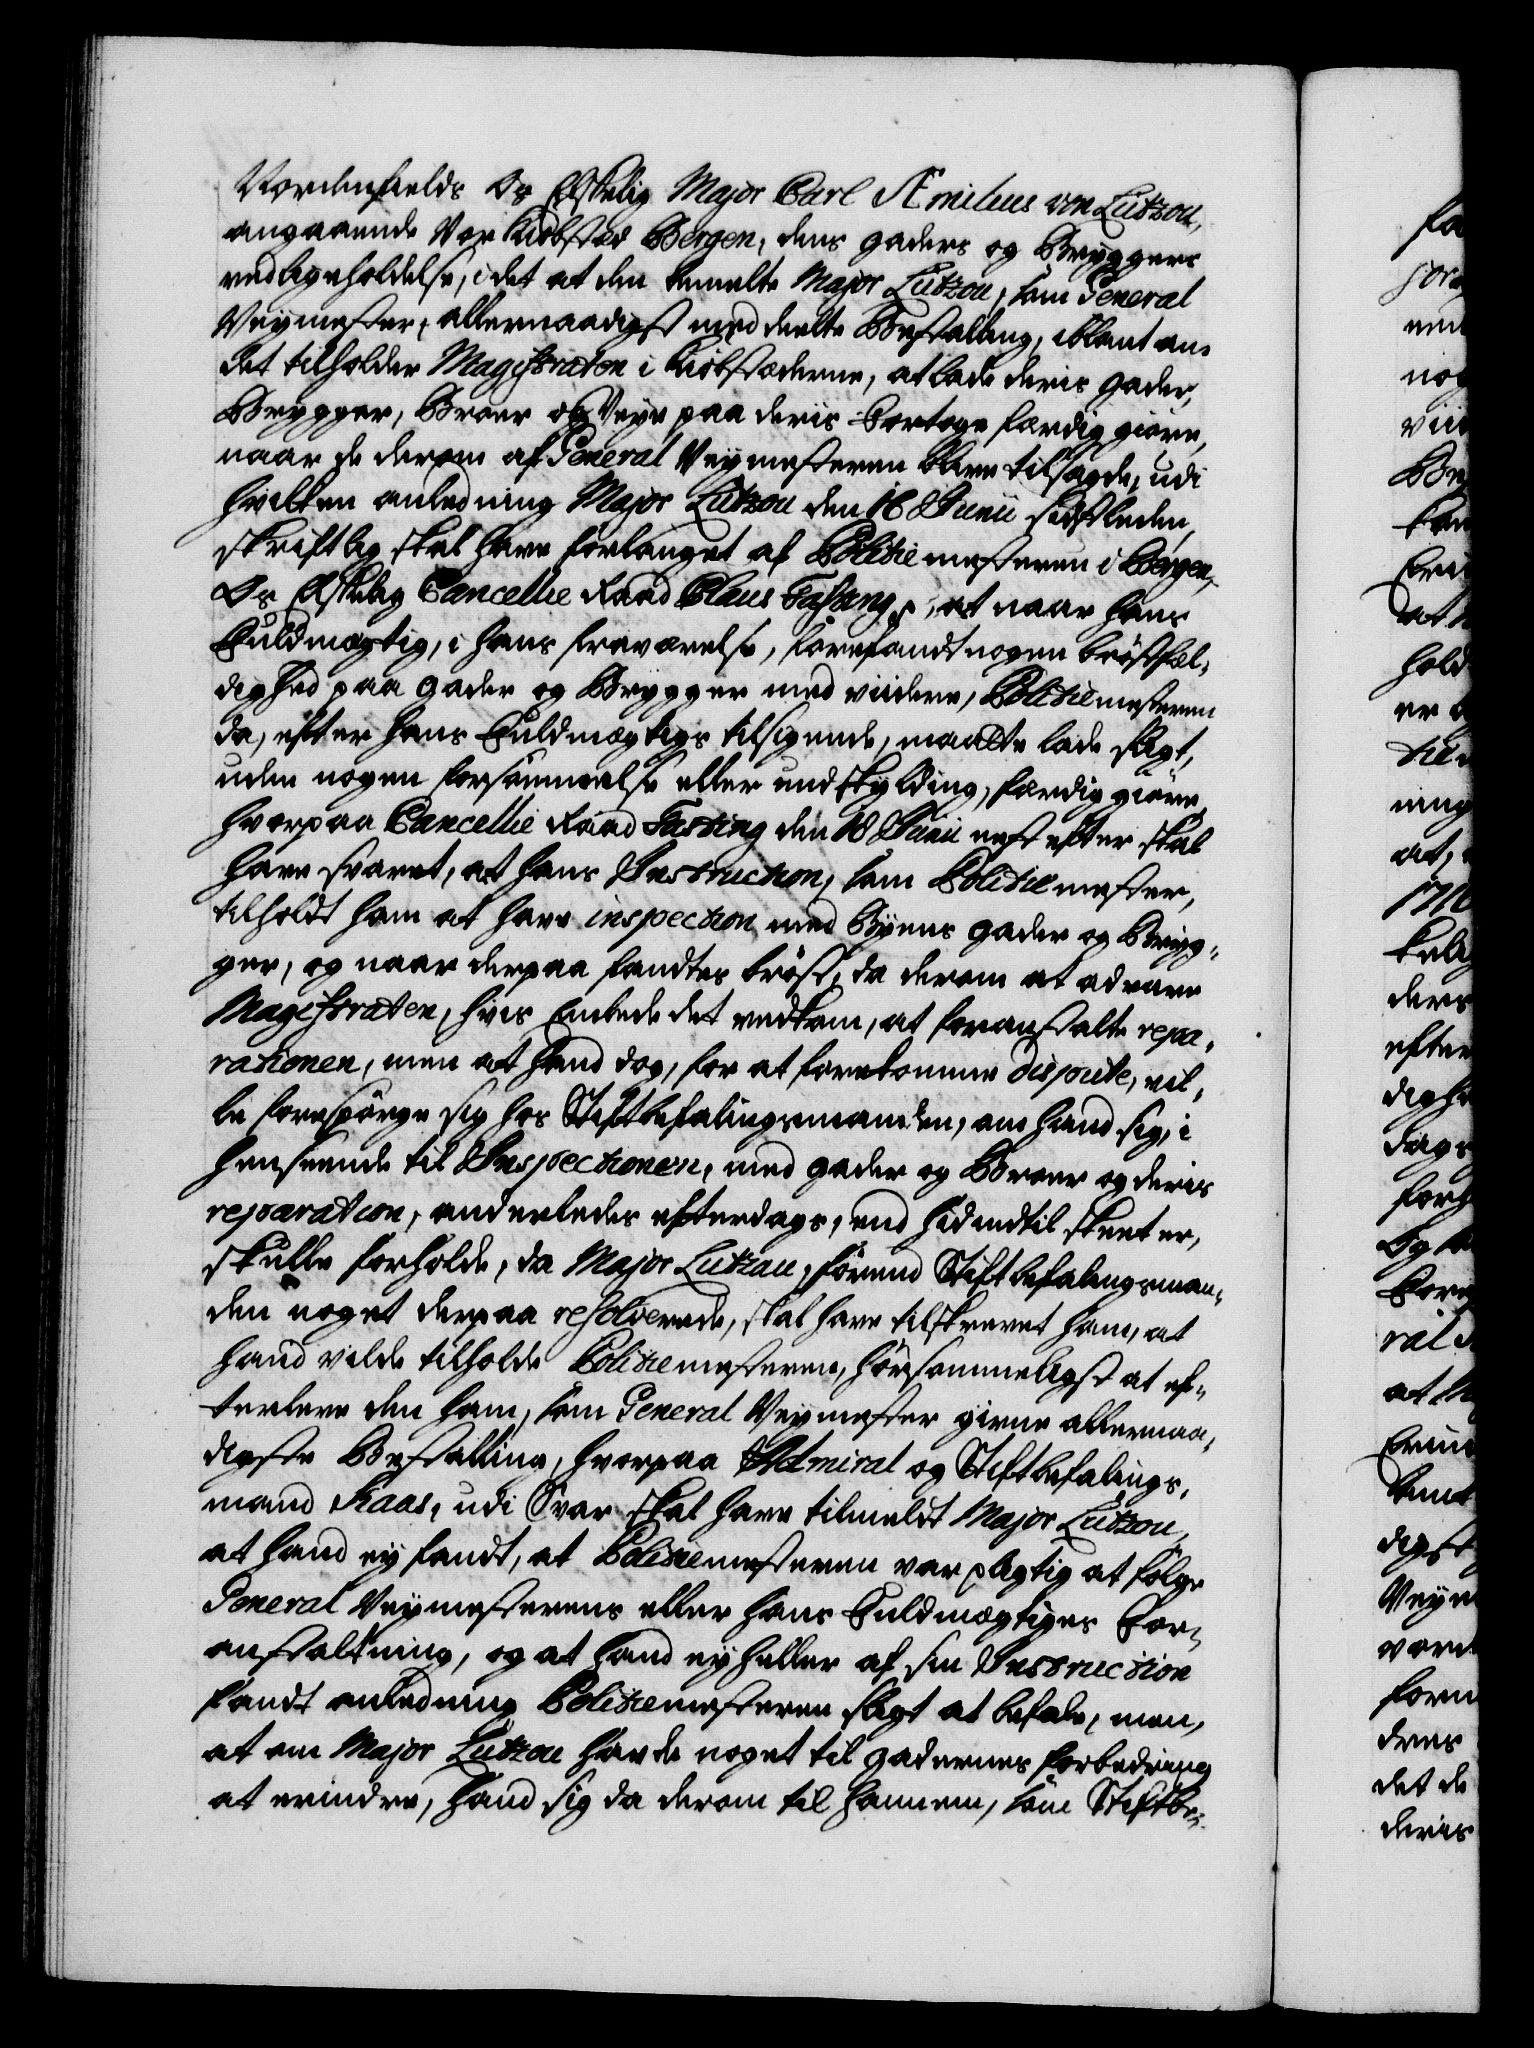 Nordenfields Os Elskelig Major Carl Æmilius von Lützou,
angaaende Vor Kiöbsted Bergen, dens gaders og Bryggers
vedligeholdelse, i det at den bemelte Major Lützou, som General
Veymester, allernaadigst meddeelte Bestalling, iblant an-
det tilholder Magistraten i Kiöbstæderne, at lade deris gader,
Brygger, Broer og Veye paa deris Fortoge færdiggiöre,
naar de derom af General Veymesteren blive tilsagde, udi
hvilken anledning Major Lützou den 16 Junii sidstleden,
skriftlig skal have forlanget af Politiemesteren i Bergen,
Os Elskelig Cancellie Raad Claus Fasting, at naar hans
Fuldmægtig, i hans fraværelse, forefandt nogen bröstfæl-
dighed paa gader og Brygger med viidere, Politiemesteren
da, efter hans Fuldmægtigs tilsigende, maatte lade sligt,
uden nogen forsömmelse eller undskylding, færdiggiöre,
hvorpaa Cancellie Raad Fasting den 18 Junii nest efter skal
have svaret, at hans Instruction, som Politiemester,
tilholdt ham at have inspection med Byens gader og Bryg-
ger, og naar derpaa fandtes bröst, da derom at advare
Magistraten, hvis Embede det vedkom, at foranstalte repa-
rationen, men at hand dog, for at forekomme dispute, vil-
le forespörge sig hos Stiftbefalingsmanden, om hand sig, i
henseende til Inspectionen, med gader og Broer og deris
reparation, anderledes efterdags, end hid indtil skeet er,
skulle forholde, da Major Lützau, förend Stiftbefalingsman-
den noget derpaa resolverede, skal have tilskrevet ham, at
hand vilde tilholde Politiemesteren, hörsommeligst at ef-
terleve den ham, som General Veymester givne allernaa-
digste Bestalling, hvorpaa Admiral og Stiftbefalings-
mand Kaas, udi Svar skal have tilmeldt Major Lützou,
at hand ey fandt, at Politiemesteren var pligtig at fölge
General Veymesterens eller hans Fuldmægtiges For-
anstaltning, og at hand ey heller af sin Instruction
fandt anledning Politiemesteren sligt at befale, men,
at om Major Lützou havde noget til gadernes forbedring
at erindre, hand sig da derom til hannem, som Stiftbe-